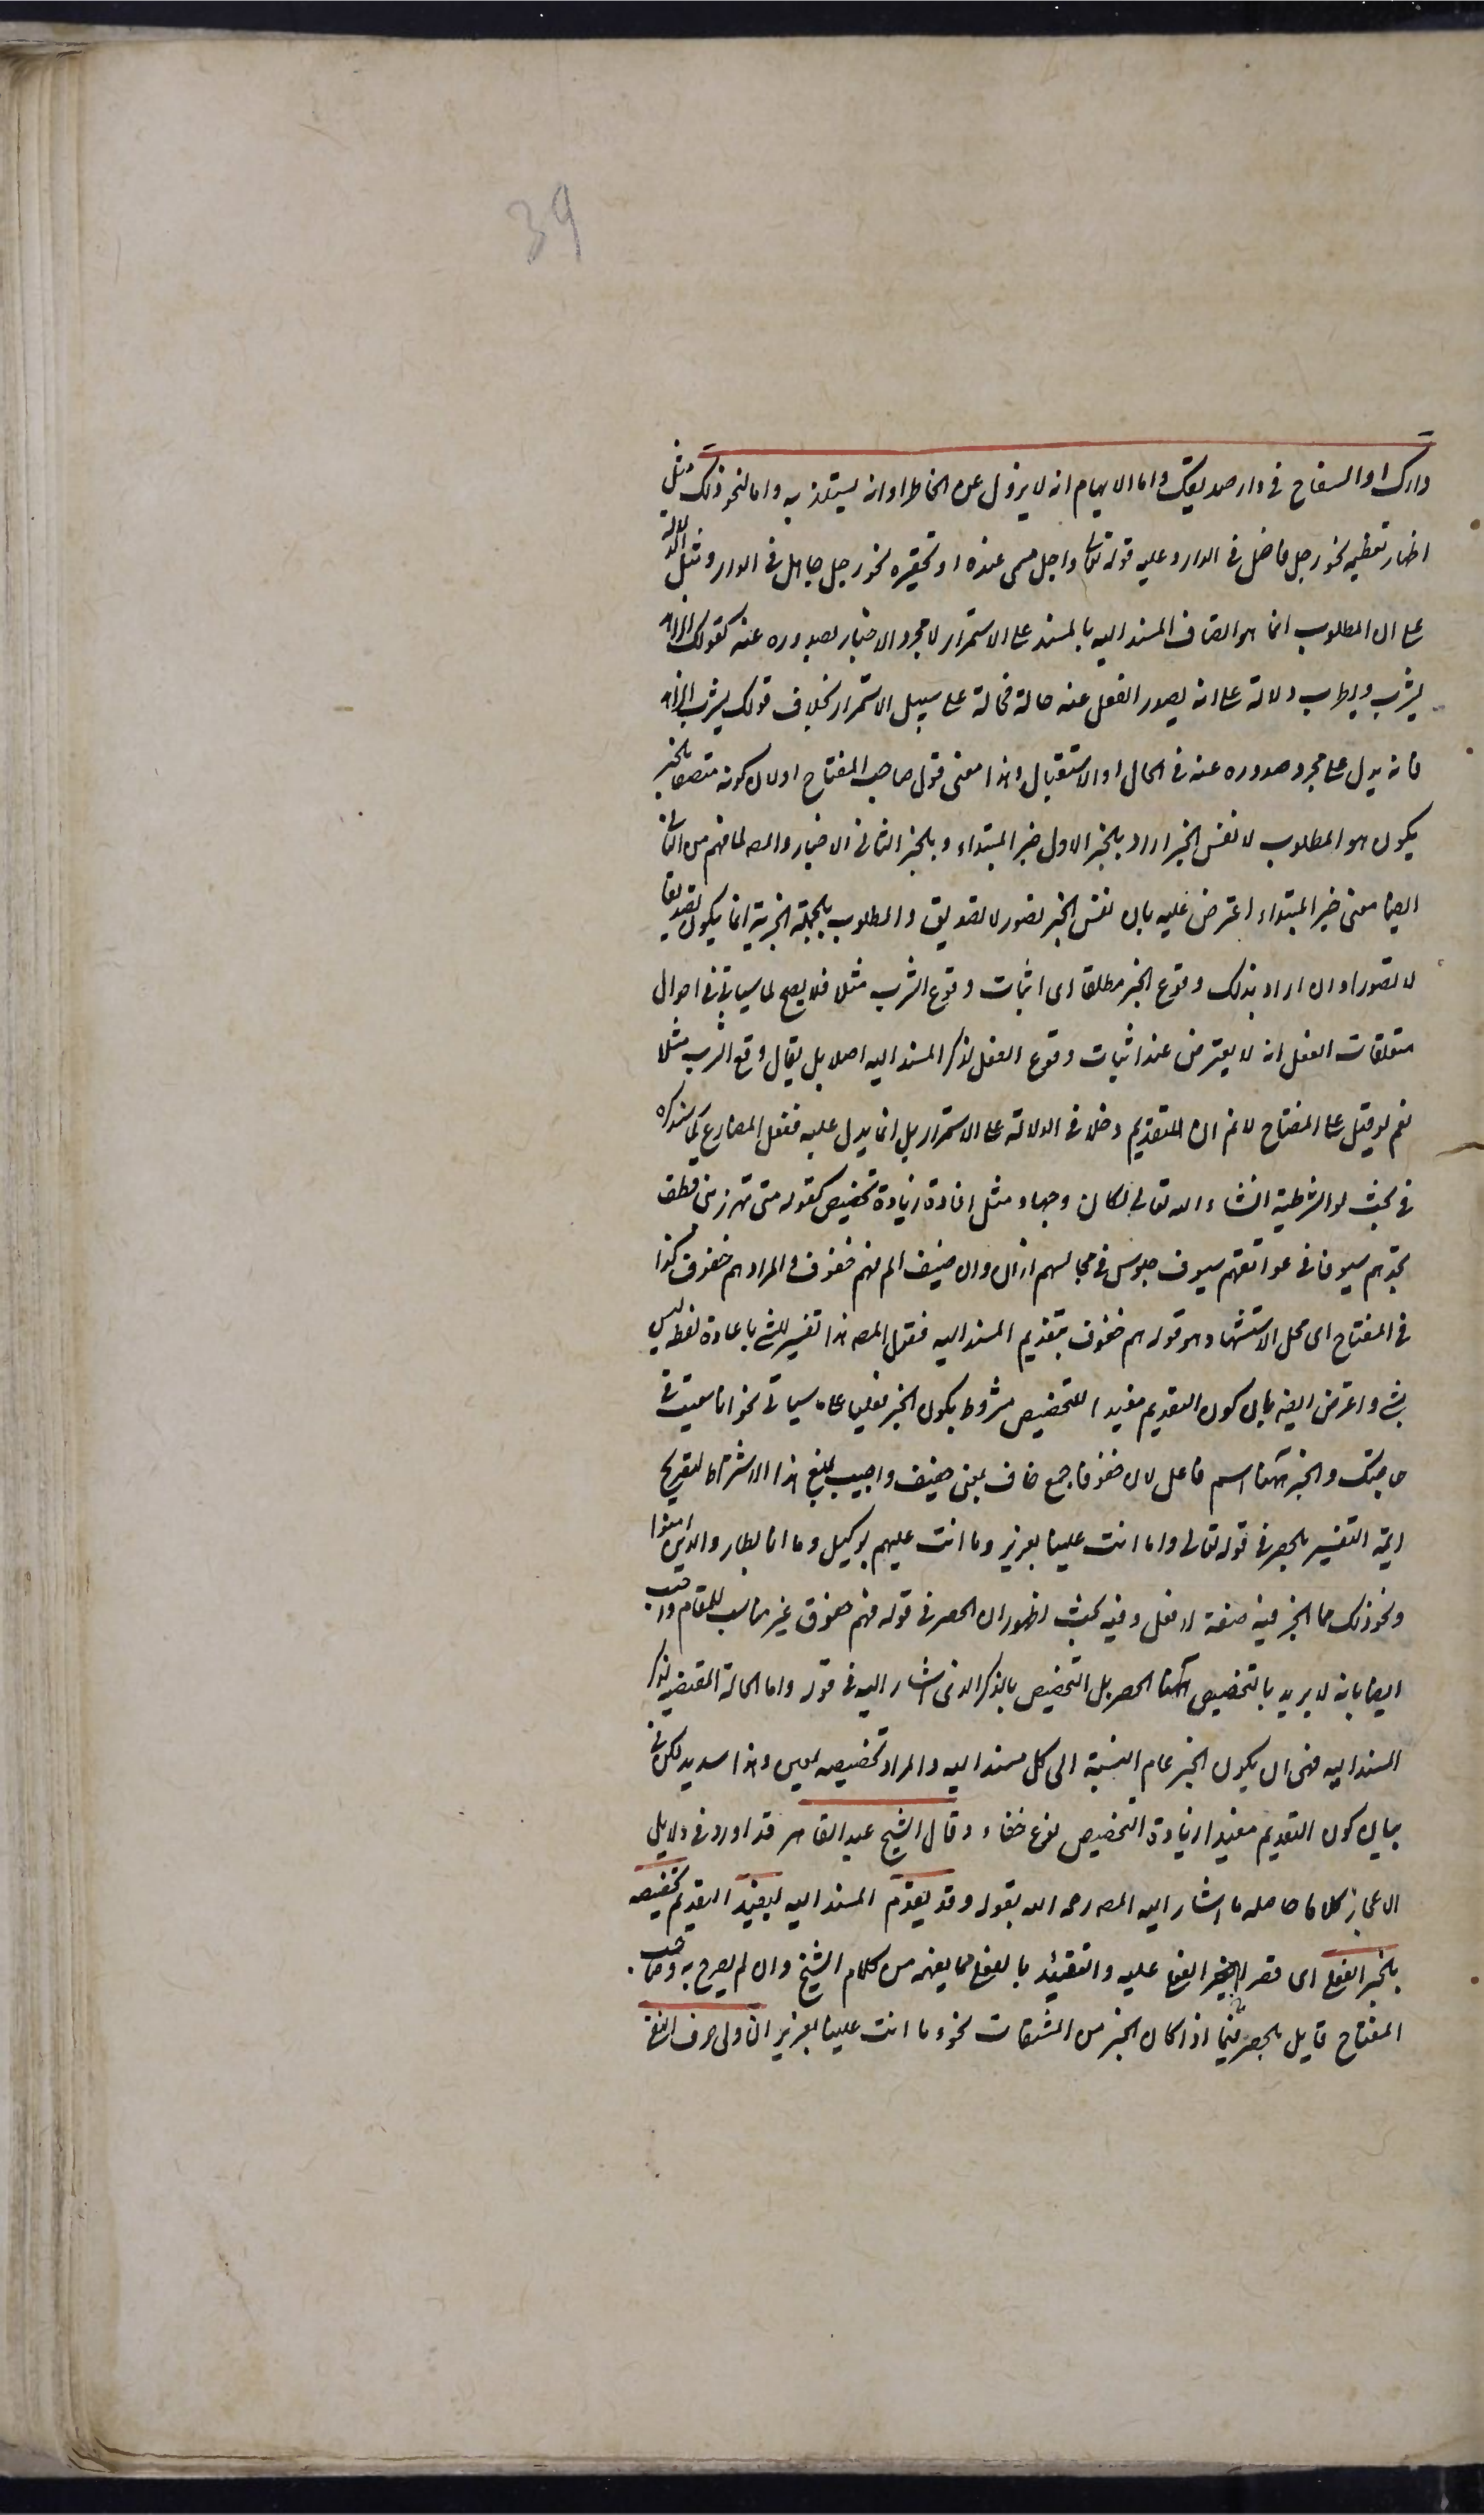 39
دارك او السفاح فى دار صديقك واما لايهام انه لا يزول عن الخاطر او انه يستلذ به واما لنحو ذلك مثل
اظهار تعظيمه نحو رجل فاضل فى الدار وعليه قوله تعالى واجل مسمى عنده او تحقيره نحو رجل جاهل فى الدار ومثل الدلالة
على ان المطلوب انما هو اتصاف المسند اليه بالمسند على الاستمرار لا مجرد الاخبار بصدوره عنه كقولك الزاهد
يشرب ويطرب دلالة على انه يصدر الفعل عنه حالة فحالة على سبيل الاستمرار بخلاف قولك يشرب الزاهد
فانه يدل على مجرد صدوره عنه فى الحال او الاستقبال وهذا معنى قول صاحب المفتاح او لان كونه متصفا بالخبر
يكون هو المطلوب لا نفس الخبر اراد بالخبر الاول خبر المبتداء وبالخبر الثانى الاخبار والمصه لما فهم من الثانى
ايضا معنى خبر المبتداء اعترض عليه بان نفس الخبر تصور لا تصديق والمطلوب بالجملة الخبرية انما يكون تصديقا
لا تصورا وان اراد بذلك وقوع الخبر مطلقا اى اثبات وقوع الشرب مثلا فلا يصح لما سياتى فى احوال
متعلقات الفعل انه لا يعترض عند اثبات وقوع الفعل لذكر المسند اليه اصلا بل يقال وقع الشرب مثلا
نعم لو قيل على المفتاح لا نم ان للتقديم دخلا فى الدلالة على الاستمرار بل انما يدل عليه فعل المضارع كما سنذكره
فى بحث لو الشرطية انشاء الله تعالى لكان وجها ومثل افادة زيادة تخصيص كقوله متى تهزز بنى قطن
تجدهم سيوفا فى عواتقهم سيوف جلوس فى مجالسهم رزان وان ضيف الم فهم خفوف والمراد هم خفوف كذا
فى المفتاح اى محل الاستشهاد هو قوله هم خفوف بتقديم المسند اليه فقول المصه هذا تفسير للشئ باعادة لفظه ليس
بشئ واعترض ايضه بان كون التقديم مفيدا للتخصيص مشروط بكون الخبر فعليا على ما سياتى نحو انا سعيت فى
حاجتك والخبر ههنا اسم فاعل لان خفوفا جمع خاف بمعنى خفيف واجيب بمنع هذا الاشتراط لتصريح
ايمة التفسير بالحصر فى قوله تعالى وما انت علينا بعزيز وما انت عليهم بوكيل وما انا بطارد الذين امنوا
ونحو ذلك مما الخبر فيه صفة لا فعل وفيه بحث لظهور ان الحصر فى قوله فهم خفوف غير مناسب للمقام واجيب
ايضا بانه لا يريد بالتخصيص ههنا الحصر بل التخصيص بالذكر الذى اشار اليه فى قوله واما الحالة المقتضيه لذكر
المسند اليه فهى ان يكون الخبر عام النسبة الى كل مسند اليه والمراد تخصيصه بمعين وهذا سديد لكن فى
بيان كون التقديم مفيدا زيادة التخصيص نوع خفاء وقال الشيخ عبد القاهر قد اورد فى دلايل
الاعجاز كلاما حاصله ما اشار اليه المصه رحمه الله بقوله وقد يقدم المسند اليه ليفيد التقديم تخصيصه
بالخبر الفعلى اى قصر الخبر الفعلى عليه والتقييد بالفعلى مما يفهم من كلام الشيخ وان لم يصرح به وصاحب
المفتاح قايل بالحصر فيما اذا كان الخبر من المشتقات نحو وما انت علينا بعزيز ان ولى حرف النفى